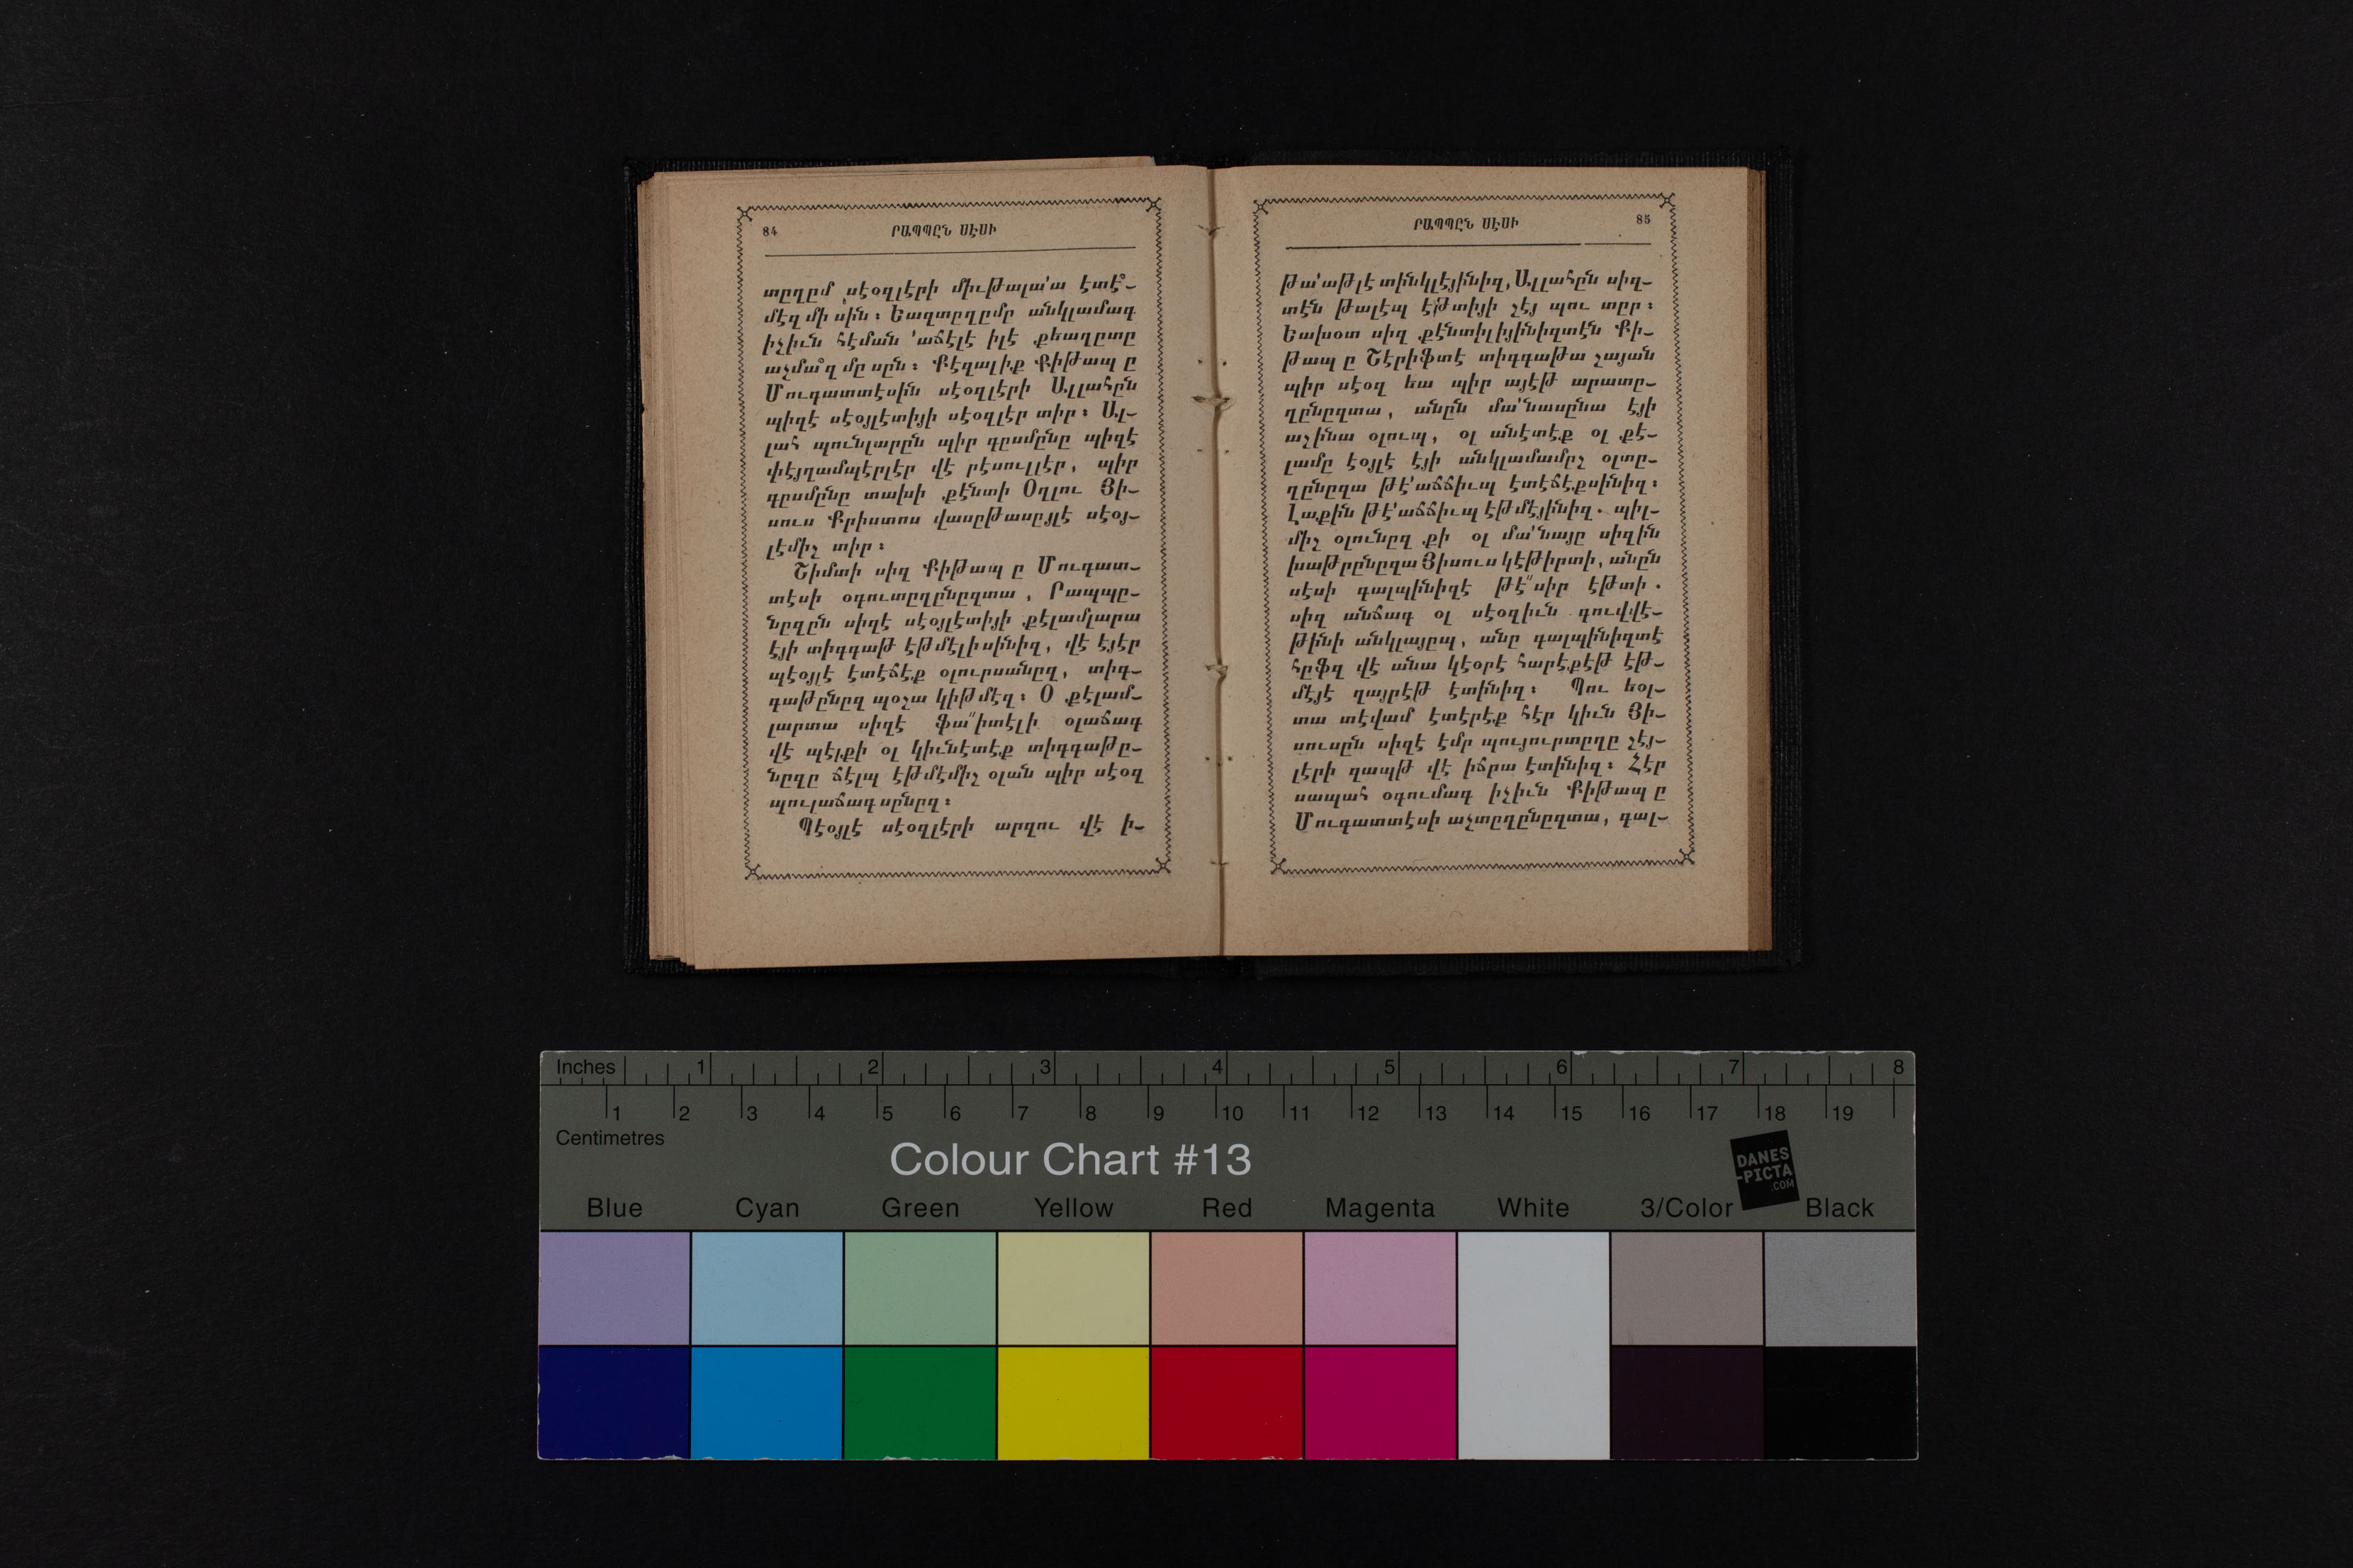 84 ՐԱՊՊԸՆ ՍԷՍԻ
տըղըմ սէօզլէրի միւթալա՛ա էտէ՞֊
մէզ մի սին։ Եազտըղըմը անկլամագ
իչիւն հէման ՚աճէլէ իլէ քեաղըտը
աչմա՞զ մը սըն։ Քէզալիք Քիթապ ը
Մուգատտէսին սէօզլէրի Ալլահըն
պիզէ սէօյլէտիյի սէօզլէր տիր։ Ալ֊
լահ պունլարըն պիր գըսմընը պիզէ
փէյղամպէրլէր վէ րէսուլլէր, պիր
գըսմընը տախի քէնտի Օղլու Յի֊
սուս Քրիստոս վասըթասըյլէ սէօյ֊
լէմիշ տիր։
Շիմտի սիզ Քիթապ ը Մուգատ֊
տէսի օգուտըղընըզտա, Րապպը֊
նըզըն սիզէ սէօյլէտիյի քէլամլարա
էյի տիգգաթ էթմէլիսինիզ, վէ էյէր
պէօյլէ էտէճէք օլուրսանըզ, տիգ֊
գաթընըզ պօշա կիթմէզ։ Օ քէլամ֊
լարտա սիզէ ֆա՛՛իտէլի օլաճագ
վէ պէլքի օլ կիւնէտէք տիգգաթը֊
նըզը ճէլպ էթմէմիշ օլան պիր սէօզ
պուլաճագսընըզ։
Պէօյլէ սէօզլէրի արզու վէ ի֊
ՐԱՊՊԸՆ ՍԷՍԻ 85
թա՛աթլէ տինկլէյինիզ, Ալլահըն սիզ֊
տէն թալէպ էթտիյի շէյ պու տըր։
Եախօտ սիզ քէնտիլիյինիզտէն Քի֊
թապ ը Շէրիֆտէ տիգգաթա շայան
պիր սէօզ եա պիր այէթ արատը֊
ղընըզտա, անըն մա՛նասընա էյի
աշինա օլուպ, օլ անէտէք օլ քէ֊
լամը էօյլէ էյի անկլամամըշ օլտը֊
ղընըզա թէ՛աճճիւպ էտէճէքսինիզ։
Լաքին թէ՛աճճիւպ էթմէյինիզ. պիլ֊
միշ օլունըզ քի օլ մա՛նայը սիզին
խաթրընըզա Յիսուս կէթիրտի, անըն
սէսի գալպինիզէ թէ՛՛սիր էթտի.
սիզ անճագ օլ սէօզիւն գուվվէ֊
թինի անկլայըպ, անը գալպինիզտէ
հըֆզ վէ անա կէօրէ հարէքէթ էթ֊
մէյէ ղայրէթ էտինիզ։ Պու եօլ֊
տա տէվամ էտէրէք հէր կիւն Յի֊
սուսըն սիզէ էմր պույուրտըղը շէյ֊
լէրի զապթ վէ իճրա էտինիզ։ Հէր
սապահ օգումագ իչիւն Քիթապ ը
Մուգատտէսի աչտըղընըզտա, գալ֊
Inches 1 2 3 4 5 6 7 8
1 2 3 4 5 6 7 8 9 10 11 12 13 14 15 16 17 18 19
Centimetres
Colour Chart #13
DANES
-PICTA
.COM
Blue Cyan Green Yellow Red Magenta White 3/Color Black